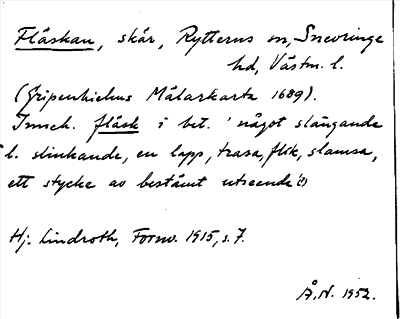 Fläskan, skär, Rytterns sn, Snevringe
hd, Västm. l.
(Gripenhielms Mälarkarta 1689).
Inneh. fläsk i bet. 'något slängande
l. slinkande, en lapp, trasa, flik, slamsa,
ett stycke av bestämt utseende'(?)
Hj. Lindroth, Fornv. 1915, s. 7.
Å.N. 1952.